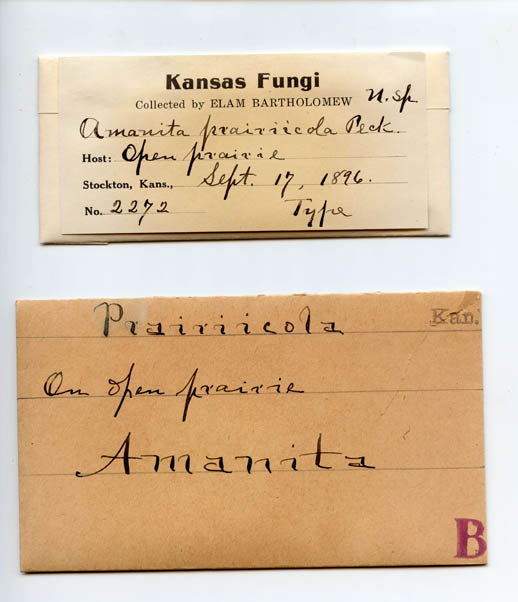 Kansas Fungi
Collected by ELAM BARTHOLOMEW N. sp.
Amanita prairiicola Peck.
Host: Open prairie
Stockton, Kans., Sept. 17, 1896.
No. 2272 Type
Prairiicola Kan.
On open prairie
Amanita
B